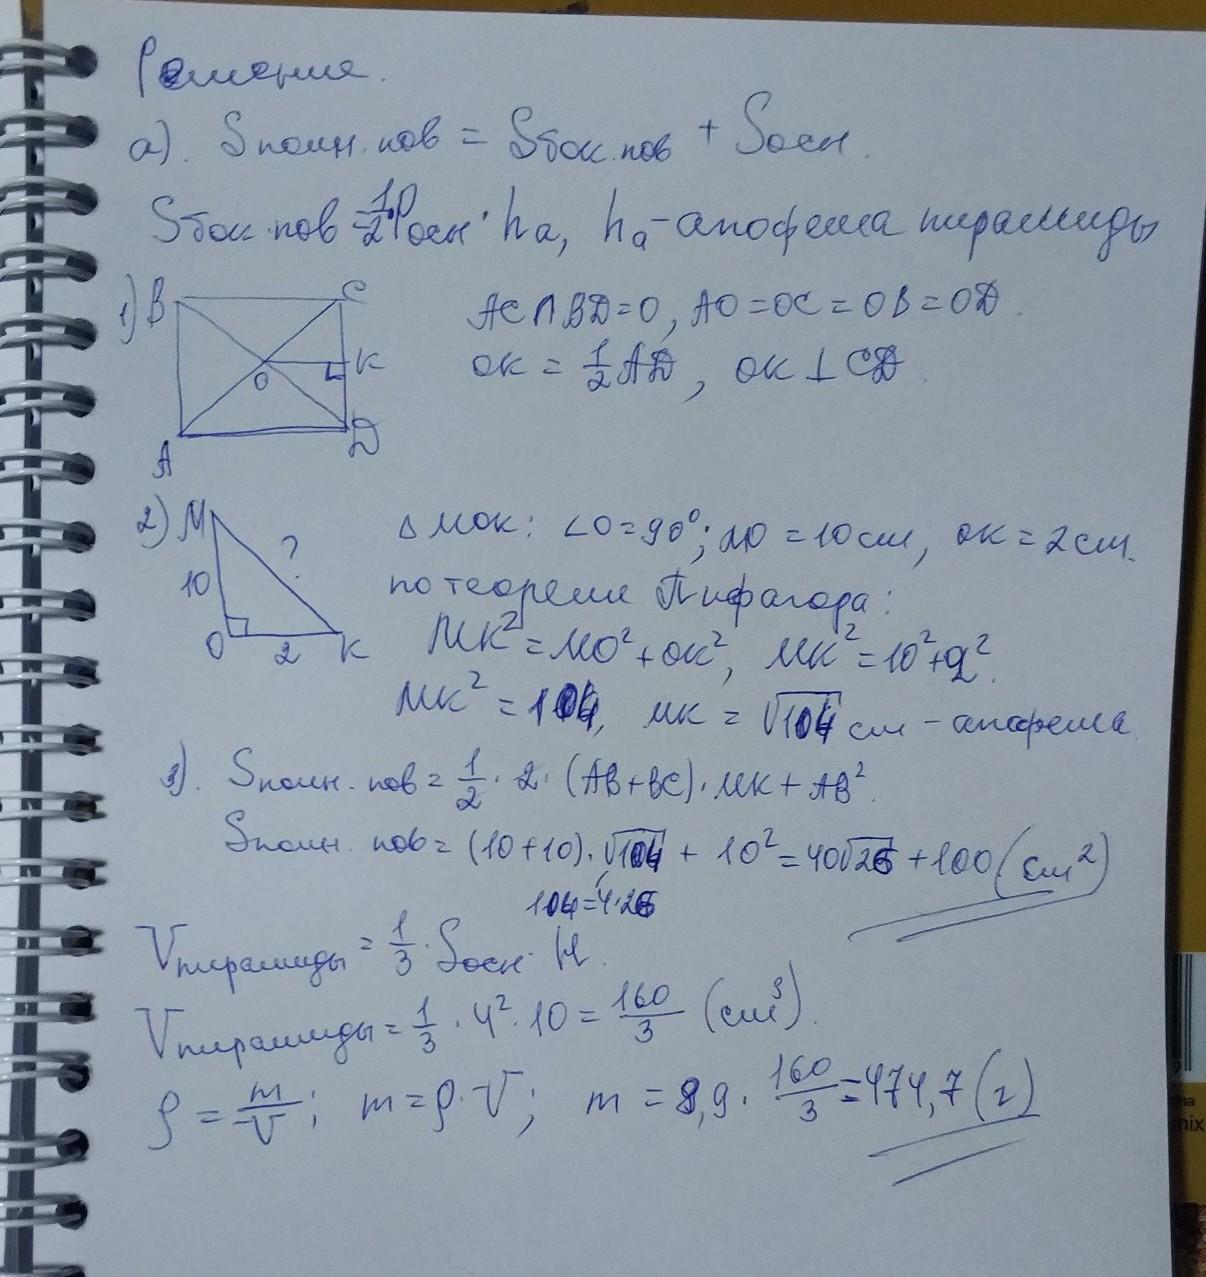 Решение.
а). Sполн.пов = Sбок.пов + Sосн.
Sбок.пов = 1/2 Pосн · ha, ha - апофема пирамиды
1) B C K O A D
AC∩BD=O, AO=OC=OB=OD.
OK = 1/2 AD, OK ⊥ CD.
2) M 10 ? O 2 K
△ MOK: ∠O=90°; MO = 10 см, OK = 2 см.
по теореме Пифагора:
MK² = MO² + OK², MK² = 10² + 2².
MK² = 104, MK = √104 см - апофема.
3). Sполн. пов = 1/2 · 2 · (AB+BC) · MK + AB².
Sполн. пов = (10+10) · √104 + 10² = 40√26 + 100 (см²)
104=4·26
Vпирамиды = 1/3 · Sосн · H.
Vпирамиды = 1/3 · 4² · 10 = 160/3 (см³).
ρ = m/V; m = ρ · V; m = 8,9 · 160/3 = 474,7 (г)